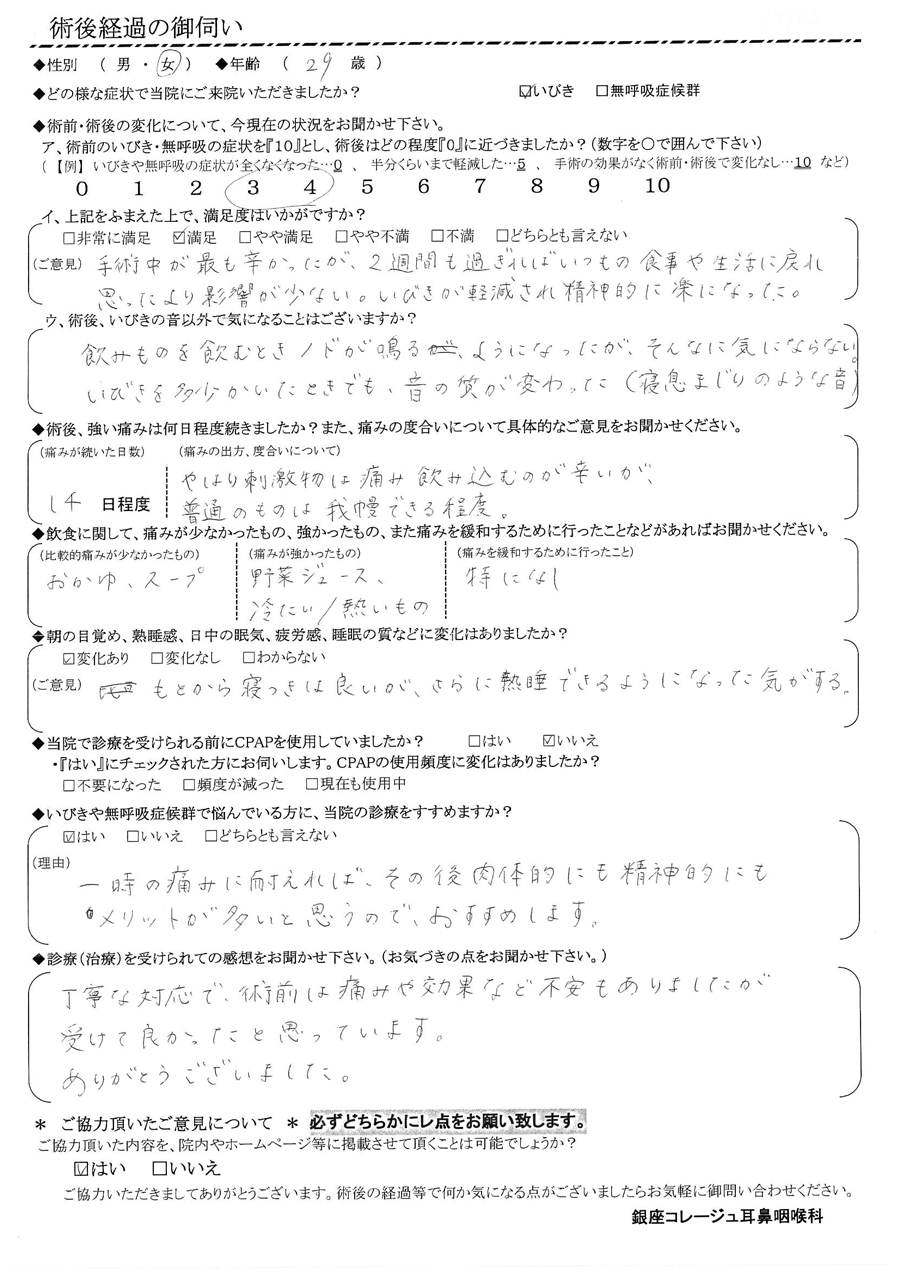 術後経過の御伺い
◆性別 ( 男 ・ 女 ) ◆年齢 ( 29 歳 )
◆どの様な症状で当院にご来院いただきましたか? ☑いびき □無呼吸症候群
◆術前・術後の変化について、今現在の状況をお聞かせ下さい。
ア、術前のいびき・無呼吸の症状を『10』とし、術後はどの程度『0』に近づきましたか?(数字を○で囲んで下さい)
(【例】いびきや無呼吸の症状が全くなくなった…0 、 半分くらいまで軽減した…5 、 手術の効果がなく術前・術後で変化なし…10 など)
0 1 2 3 4 5 6 7 8 9 10
イ、上記をふまえた上で、満足度はいかがですか?
□非常に満足 ☑満足 □やや満足 □やや不満 □不満 □どちらとも言えない
(ご意見) 手術中が最も辛かったが、2週間も過ぎればいつもの食事や生活に戻れ
思ったより影響が少ない。いびきが軽減され精神的に楽になった。
ウ、術後、いびきの音以外で気になることはございますか?
飲みものを飲むときノドが鳴るが、ようになったが、そんなに気にならない。
いびきを多少かいたときでも、音の質が変わった(寝息まじりのような音)
◆術後、強い痛みは何日程度続きましたか?また、痛みの度合いについて具体的なご意見をお聞かせください。
(痛みが続いた日数) (痛みの出方、度合いについて)
やはり刺激物は痛み飲み込むのが辛いが、
14 日程度 普通のものは我慢できる程度。
◆飲食に関して、痛みが少なかったもの、強かったもの、また痛みを緩和するために行ったことなどがあればお聞かせください。
(比較的痛みが少なかったもの) (痛みが強かったもの) (痛みを緩和するために行ったこと)
おかゆ、スープ 野菜ジュース、 特になし
冷たい/熱いもの
◆朝の目覚め、熟睡感、日中の眠気、疲労感、睡眠の質などに変化はありましたか?
☑変化あり □変化なし □わからない
(ご意見) もとから寝つきは良いが、さらに熟睡できるようになった気がする。
◆当院で診療を受けられる前にCPAPを使用していましたか? □はい ☑いいえ
・『はい』にチェックされた方にお伺いします。CPAPの使用頻度に変化はありましたか?
□不要になった □頻度が減った □現在も使用中
◆いびきや無呼吸症候群で悩んでいる方に、当院の診療をすすめますか?
☑はい □いいえ □どちらとも言えない
(理由) 一時の痛みに耐えれば、その後肉体的にも精神的にも
メリットが多いと思うので、おすすめします。
◆診療(治療)を受けられての感想をお聞かせ下さい。(お気づきの点をお聞かせ下さい。)
丁寧な対応で、術前は痛みや効果など不安もありましたが
受けて良かったと思っています。
ありがとうございました。
＊ ご協力頂いたご意見について ＊ 必ずどちらかにレ点をお願い致します。
ご協力頂いた内容を、院内やホームページ等に掲載させて頂くことは可能でしょうか?
☑はい □いいえ
ご協力いただきましてありがとうございます。術後の経過等で何か気になる点がございましたらお気軽に御問い合わせください。
銀座コレージュ耳鼻咽喉科